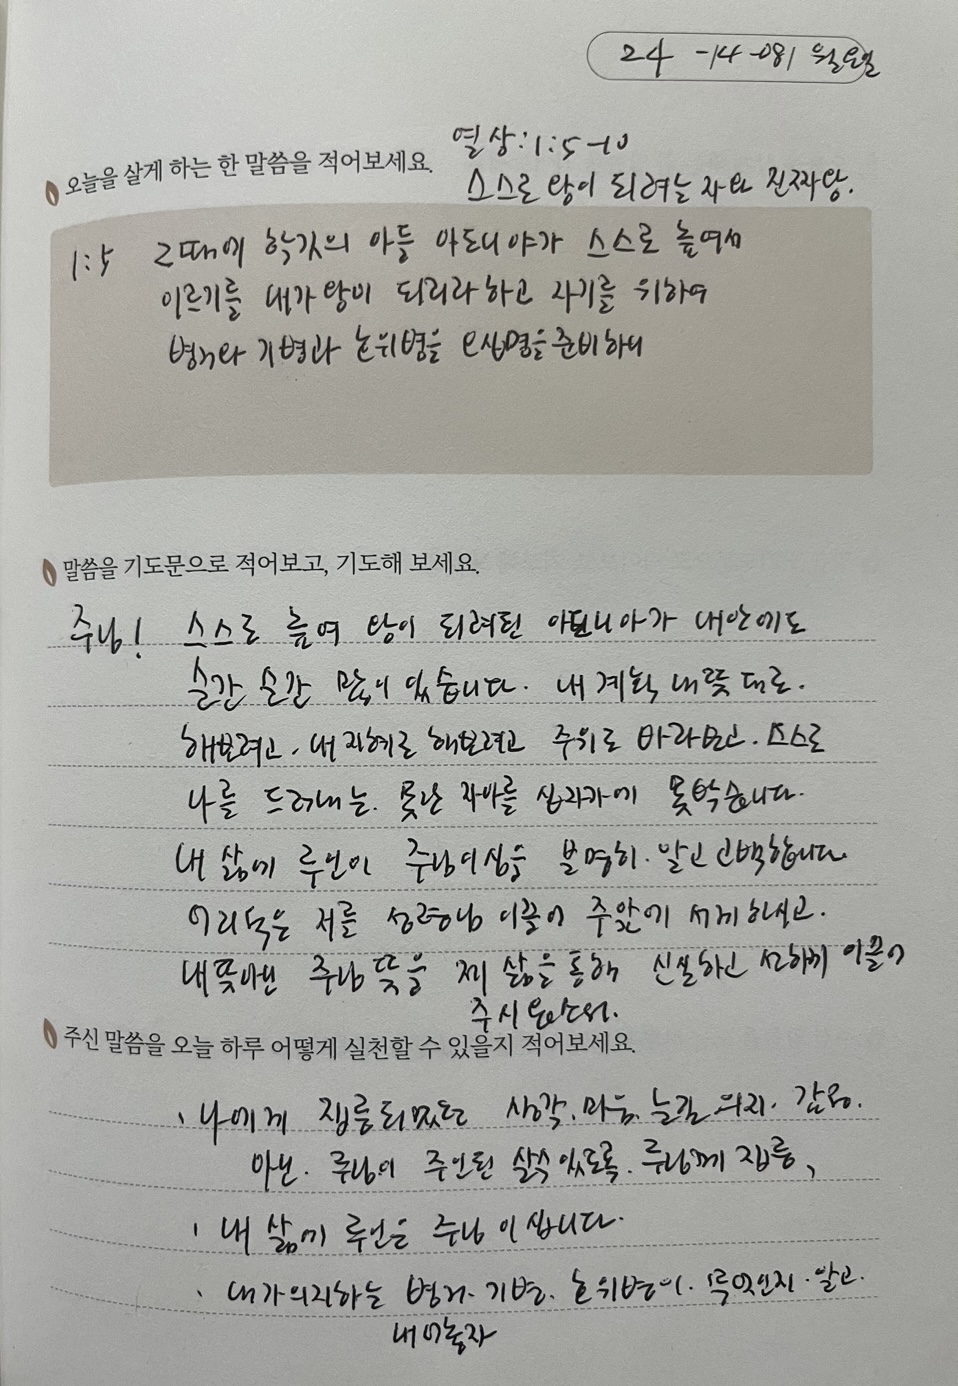 24 -14 -08 / 월요일
열상:1:5-10
오늘을 살게 하는 한 말씀을 적어보세요.
스스로 왕이 되려는 자와 진짜왕.
1:5 그때에 학깃의 아들 아도니야가 스스로 높여서
이르기를 내가 왕이 되리라 하고 자기를 위하여
병거와 기병과 호위병을 오십명을 준비하니
말씀을 기도문으로 적어보고, 기도해 보세요.
주님! 스스로 높여 왕이 되려된 아도니야가 내안에도
순간 순간 많이 있습니다. 내 계획 내 뜻 대로.
해보려고. 내 지혜로 해보려고 주위로 바라보고. 스스로
나를 드러내는. 못난 자아를 십자가에 못박습니다.
내 삶에 주인이 주님이심을 분명히. 알고 고백합니다.
어리석은 저를 성령님 이끌어 주앞에 서게 하시고.
내뜻아닌 주님 뜻을 제 삶을 통해 신실하고 선하게 이끌어
주시옵소서.
주신 말씀을 오늘 하루 어떻게 실천할 수 있을지 적어보세요.
나에게 집중되있는 생각. 마음. 느낌. 의지. 감정.
아닌. 주님이 주인된 삶수있도록. 주님께 집중,
내 삶에 주인은 주님 이십니다.
내가의지하는 병거. 기병. 호위병이. 무엇인지. 알고.
내어놓자